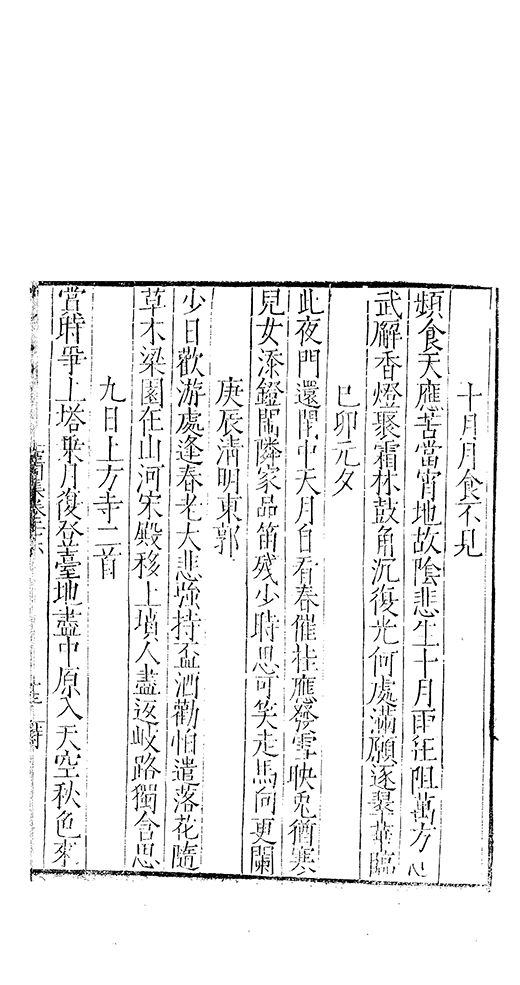 十月月食不見
頻食天應苦當宵地故陰悲生十月雨徃阻萬方心
武廨香燈聚霜林鼓角沉復光何處滿願逐翠華臨
己卯元夕
此夜門還閉中天月自看春催桂應發雪映兎猶寒
兒女添鐙閙隣家品笛殘少時思可笑走馬向更闌
庚辰清明東郭
少日歡游處逢春老大悲強持盃酒勸怕遣落花隨
草木梁園在山河宋殿移上墳人盡返岐路獨含思
九日上方寺二首
當時爭上塔乗月復登臺地盡中原入天空秋色來